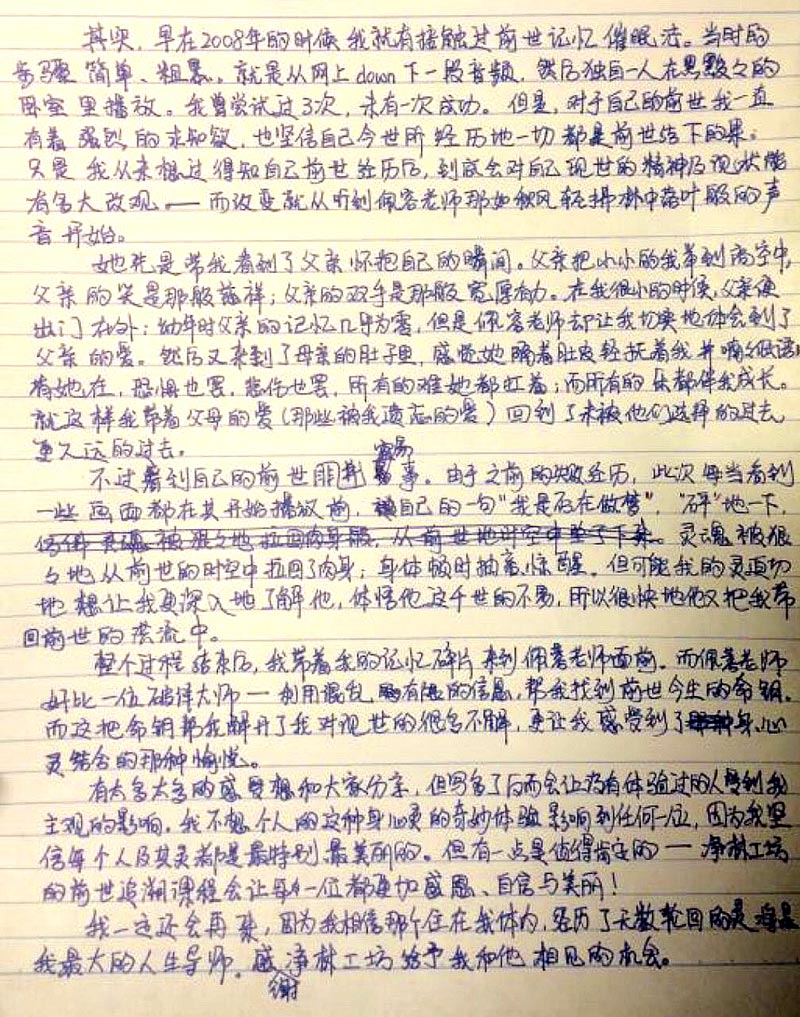 其实，早在2008年的时候我就有接触过前世记忆催眠法。当时的
步骤简单、粗暴，就是从网上down下一段音频，然后独自一人在黑黢々的
卧室里播放。我曾尝试过3次，未有一次成功。但是，对于自己的前世我一直
有着强烈的求知欲，也坚信自己今世所经历地一切都是前世结下的果。
只是我从未想过得知自己前世经历后，到底会对自己现世的精神及现状能
有多大改观 — 而改变就从听到佩容老师那如秋风轻掃林中落叶般的声
音开始。
她先是带我看到了父亲怀抱自己的瞬间。父亲把小小的我举到高空中，
父亲的笑是那般慈祥；父亲的双手是那般宽厚有力。在我很小的时候，父亲便
出门在外；幼年时父亲的记忆几乎为零，但是佩容老师却让我切实地体会到了
父亲的爱。然后又来到了母亲的肚子里，感觉她隔着肚皮轻抚着我并喃々低语：
有她在，恐惧也罢，悲伤也罢，所有的难她都扛着；而所有的乐都伴我成长。
就这样我带着父母的爱（那些被我遗忘的爱）回到了未被他们选择的过去，
更久远的过去。
不过看到自己的前世非容易事。由于之前的失败经历，此次每当看到
一些画面都在其开始播放前，被自己的一句“我是否在做梦”，“砰”地一下，
灵魂被狠
々地从前世的时空中拉回了肉身；身体顿时抽离、惊醒。但可能我的灵更切
地想让我更深入地了解他，体悟他这千世的不易，所以很快地他又把我带
回前世的洪流中。
整个过程结束后，我带着我的记忆碎片来到佩容老师面前。而佩容老师
好比一位破译大师 — 利用混乱有限的信息，帮我找到前世今生的命钥。
而这把命钥帮我解开了我对现世的很多不解，更让我感受到了身心
灵结合的那种愉悦。
有太多太多的感受想和大家分享，但写多了反而会让没有体验过的人受到我
主观的影响。我不想个人的这种身心灵的奇妙体验影响到任何一位，因为我坚
信每个人及其灵都是最特别、最美丽的。但有一点是值得肯定的 — 净林工坊
的前世追溯课程会让每一位都更加感恩、自信与美丽！
我一定还会再来，因为我相信那个住在我体内，经历了无数轮回的灵魂是
我最大的人生导师。感谢净林工坊给予我和他相见的机会。